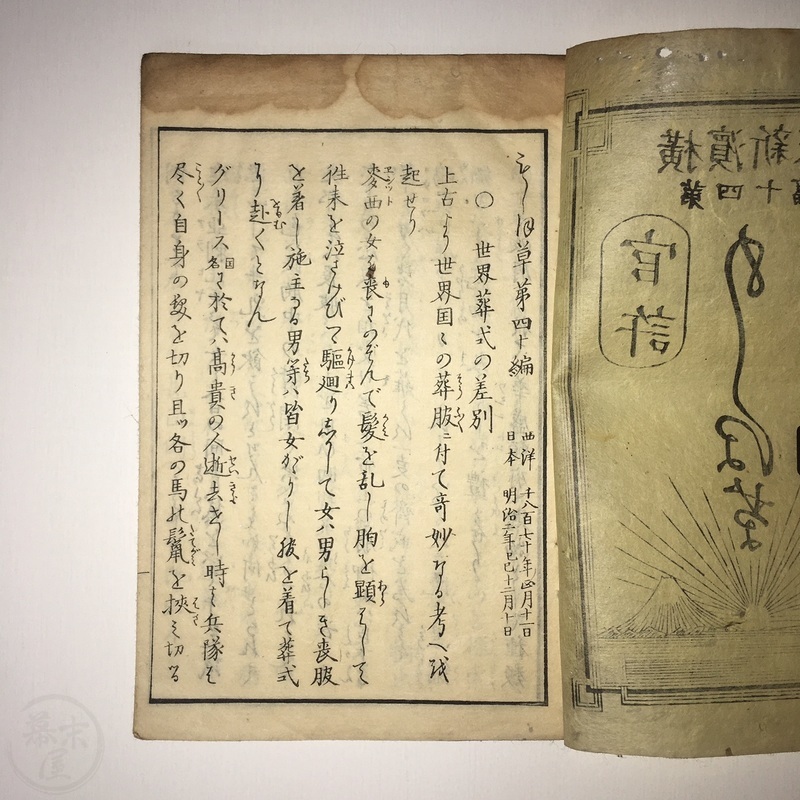 もしほ草第四十編
西洋 千八百七十年正月十一日
日本 明治二年己巳十二月十日
○ 世界葬式の差別
上古より世界国々の葬服ニ付て奇妙なる考へ
起せり
麥西の女は喪にのぞんで髪を乱し胸を顕はして
往来を泣さけびて驅廻り して女ハ男らしき喪服
を着し施主なる男等ハ皆女がりし 着て葬式
り赴くとなん
グリース国に於てハ高貴の人逝去せし時は兵隊は
尽く自身の髪を切り且ツ各の馬の鬣を挾み切る
横濱新
第十四
官許
もしほ草
幕末屋